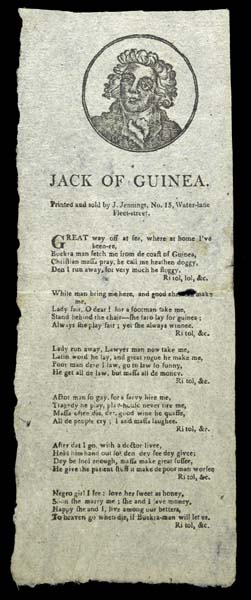 JACK OF GUINEA.
Printed and sold by J. Jennings, No. 15, Water-lane
Fleet-street.
GREAT way off at sea, where at home I've
been-ee,
Buckra man fetch me from de coast of Guinea,
Christian massa pray, he call me heathen doggy,
Den I run away, for very much he floggy.
Ri tol, lol, &c.
White man bring me here, and good make
me,
Lady fair, O dear! for a footman take me,
Stand behind the chair—she faro lay for guinea;
Always she play fast; yet she always winnee.
Ri tol, &c.
Lady run away, Lawyer man now take me,
Latin word he lay, and great rogue he make me,
Poor man dare I law, go to law so funny,
He get all de law, but massa all de money.
Ri tol, &c.
Actor man so gay, for a sarvy hire me,
Tragedy he play, never tire me,
Massa often die, good wine he quaffe,
All de people cry; I and massa laughee.
Ri tol, &c.
After dat I go, with a doctor livee,
Held him hand out for den dey fee dey givee;
Dey be ind enough, massa make great fussee,
He give the patient stuff it make de poor man worsee
Ri tol, &c.
Negro girl I see: love her sweet as honey,
Soon she marry me; she and I save money,
Happy she and I, live among our betters,
To heaven go when die, if Buckra-man will let us.
Ri tol, &c.